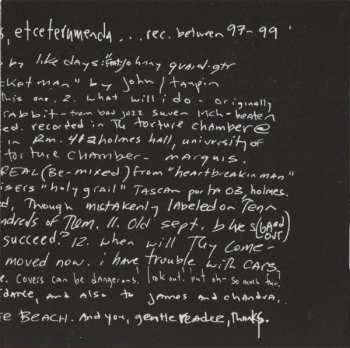 , etceterymenda ... rec. between 97-99
by like days: feat: johnny guard-gtr
cketman" by john/taupin
this one. 2. what will i do - originally
rabbit - from bad jazz suwen inch-beaten
ed. recorded in the torture chamber @
in Rm. 412 holmes hall, university of
torture chamber - marquis.
REAL (Re-mixed) from "heartbreakin man"
isers "holy grail" TASCAM porta 03, holmes.
d, Though mistakenly labeled on Tenn
ndreds of Them. 11. Old sept. blues (GAed OVR)
succeed? 12. when will Thy come-
moved now. i have trouble with cars.
e. covers can be dangerous! look out! but oh- so much fun!
idance, and also to james and chandra.
SE BEACH. And you, gentle reader, thanks.